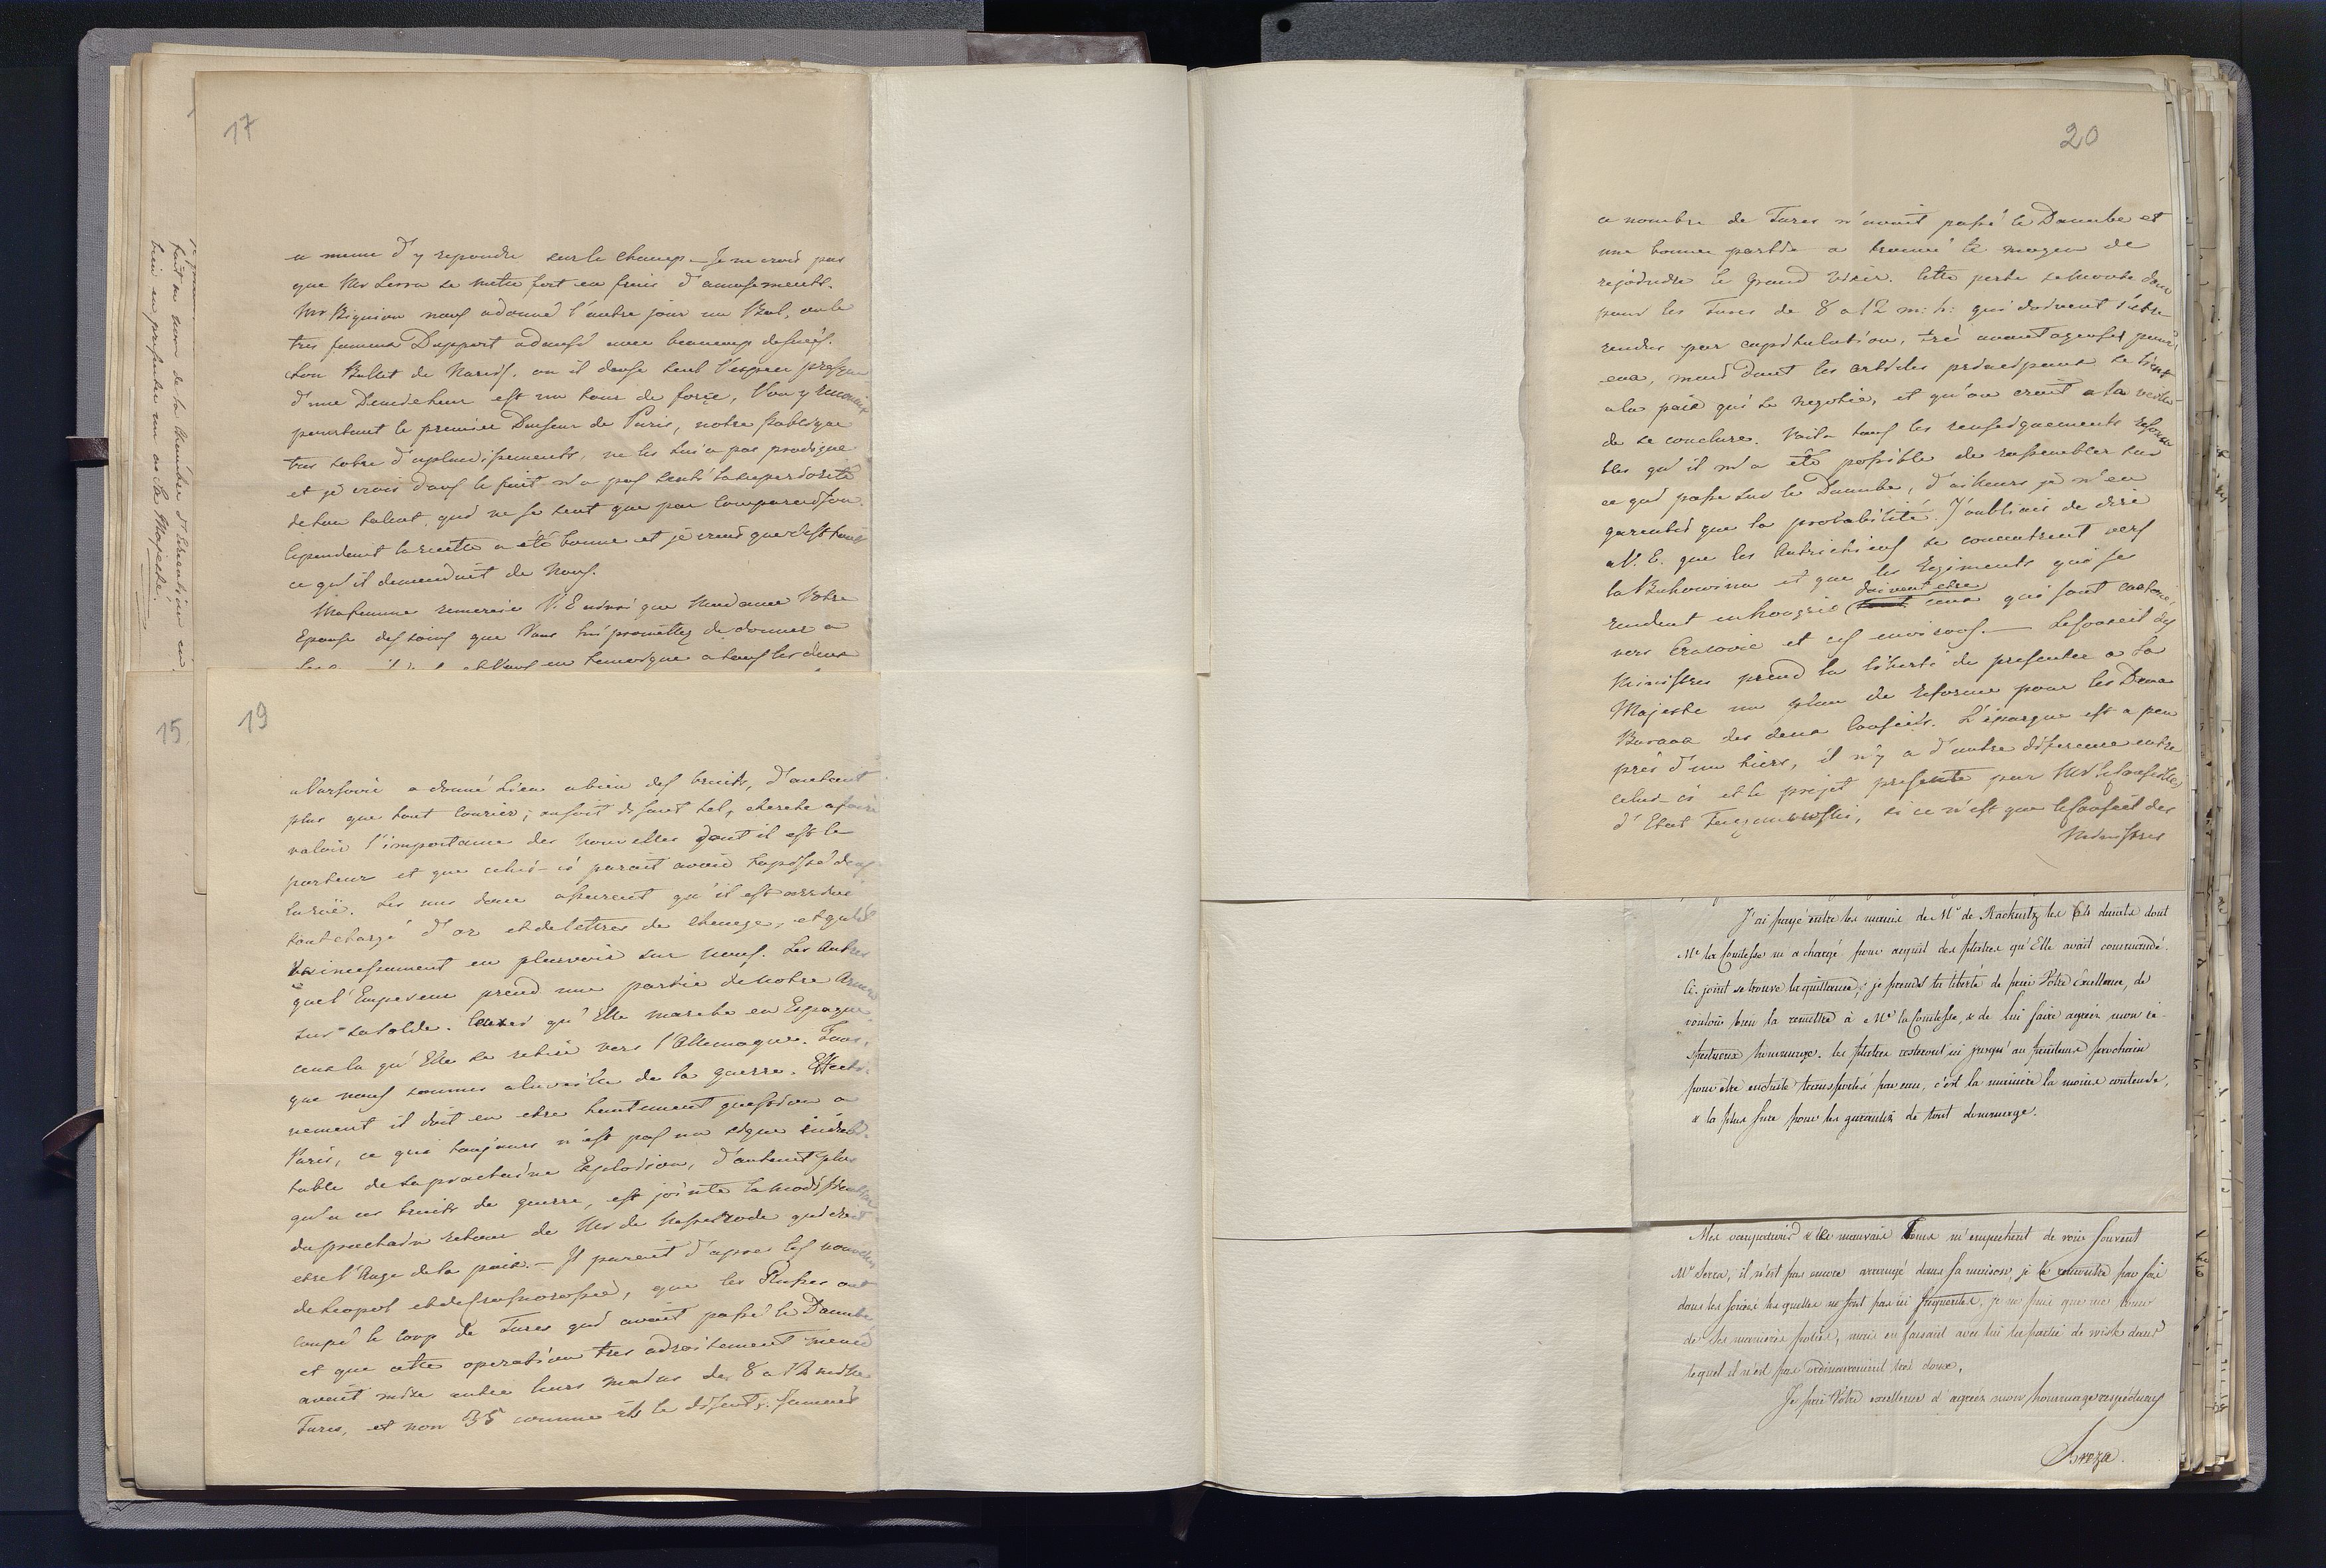 17
a meme d'y repondre sur le champ. Je ne crois pas
que Mr Serra se mette fort en frais d'amusements.
Mr Bignion nous a donné l'autre jour un Bal, ou le
tres fameux Dupport a dansé avec beaucoup de succés.
Son Ballet de Narcis. ou il danse seul l'espace presque
d'une Demieheure est un tour de force, l'on y reconnoit
pourtant le premier Danseur de Paris, notre Publique
tres sobre d'aplaudissements, ne les lui a pas prodigué
et je crois dans le fait n'a pas senti la superiorité
de son talent, qui ne se sent que par comparaison.
Cependant la recette a été bonne et je crois que c'est tout
ce qu'il demandoit de Nous.
Ma femme remercie V. E ainsi que Madame Votre
Epouse des soins que Vous lui promettez de donner a
a tous les deux
15
fait au nom de la chambre d'Education en
bien en presenter un a Sa Majesté.
19
a Varsovie a donné Lieu a bien des bruits, d'autant
plus que tout Courier, en soit disant tel, cherche a faire
valoir l'importance des nouvelles dont il est le
porteur et que celui-ci parait avoir
Les uns donc assurent qu'il est arrivé
tout chargé d'or et de lettres de change, et qu'il
va incessament en pleuvoir sur nous. Les Autres
que l'Empereur prend une partie de notre Armée
sur sa solde. Ceux-ci qu'Elle marche en Espagne,
ceux la qu'Elle se retire vers l'Allemagne. Tous,
que nous sommes a la veille de la guerre. Effecti-
vement il doit en etre hautement question a
Paris, ce qui toujours n'est pas un signe indubi-
table de sa prochaine Explosion, d'autant plus
qu'a ces bruits de guerre, est jointe la modification
du prochain retour de Mr de Nesselrode qui doit
etre l'Ange de la paix. — Il parait d'apres les nouvelles
de Leopol et de, que les Russes ont
coupé le Corp de Turcs qui avoit passé le Danube,
et que cette operation tres adroitement menée
avoit mise entre leurs mains de 8 a 12 mille
Turcs, et non 35 comme ils le disent. Jamais
20
ce nombre de Turcs n'avoit passé le Danube et
une bonne partie a trouvé le moyen de
rejoindre le Grand Visir. Cette perte se monte donc
pour les Turcs de 8 a 12 m: h: qui doivent s'etre
rendus par capitulation, très avantageuse pour
eux, mais dont les articles principaux se lient
a la paix qui se negotie, et qu'on croit a la veille
de se conclure. Voila tous les renseignements
bles qu'il m'a été possible de rassembler sur
ce qui passe sur le Danube, d'ailleurs je n'en
garantis que la probabilité. J'oubliois de dire
a V. E. que les Autrichiens se concentrent vers
la Bukowina et que les Regiments qui se
rendent en hongrie doivent etre ceux qui sont cantonés
vers Cracovie et ces environs. — Le Conseil des
Ministres prend la liberté de presenter a Sa
Majesté un plan de Reforme pour les Deux
Buraux des deux Conseils. L'épargne est a peu
près d'un tiers, il n'y a d'autre difference entre
celui-ci et le projet presenté par Mr le Conseiller
d'Etat, si ce n'est que le Conseil des
Ministres
J'ai payé entre les mains de Mr de Racknitz les 64 ducats dont
Me la Comtesse m'a chargé pour acquit des platres qu'Elle avait commandé.
Ci-joint se trouve la quittance; je prends la liberté de prier Votre Excellence, de
vouloir bien la remettre à Me la Comtesse, & de lui faire agréer mon re-
spectueux hommage. Les platres resteront ici jusqu'au printems prochain
pour être ensuite transportés par eau, c'est la manière la moins couteuse,
& la plus sure pour les garantir de tout dommage.
Mes occupations & le mauvais tems m'empechent de voir souvent
Mr Serra, il n'est pas encore arrangé dans sa maison, je le rencontre par fois
dans les soirées lesquelles ne sont pas ici frequentes, je ne puis que me louer
de ses manières polies, mais en faisant avec lui la partie de wisk dans
lequel il n'est pas ordinairement très doux.
Je prie Votre excellence d'agréer mon hommage respectueux
Breza.